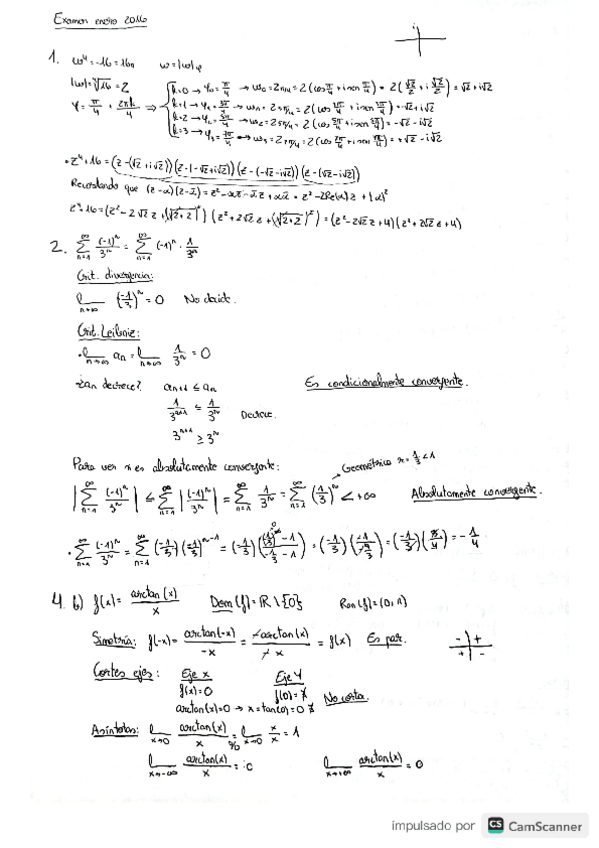 Examen enero 2016
1. w⁴ = -16 = 16π w = |w|φ
|w| = ⁴√16 = 2
φ = π/4 + 2πk/4 ⇒
k=0 → φ₀ = π/4 → w₀ = 2π/4 = 2(cos π/4 + i sen π/4) = 2(√2/2 + i √2/2) = √2 + i√2
k=1 → φ₁ = 3π/4 → w₁ = 23π/4 = 2(cos 3π/4 + i sen 3π/4) = -√2 + i√2
k=2 → φ₂ = 5π/4 → w₂ = 25π/4 = 2(cos 5π/4 + i sen 5π/4) = -√2 - i√2
k=3 → φ₃ = 7π/4 → w₃ = 27π/4 = 2(cos 7π/4 + i sen 7π/4) = +√2 - i√2
• z⁴+16 = (z-(√2+i√2))(z-(-√2+i√2))(z-(-√2-i√2))(z-(√2-i√2))
Recordando que (z-α)(z-ᾱ) = z² - αz - ᾱz + αᾱ = z² - 2Re(α)z + |α|²
z⁴+16 = (z² - 2√2 z + (√2+2)²)(z² + 2√2 z + (√2+2)²) = (z² - 2√2 z + 4)(z² + 2√2 z + 4)
2. ∞Σn=1 (-1)ⁿ/3ⁿ = ∞Σn=1 (-1)ⁿ · 1/3ⁿ
Crit. divergencia:
lim n→∞ (-1/3)ⁿ = 0 No decide.
Crit. Leibniz:
• lim n→∞ an = lim n→∞ 1/3ⁿ = 0
¿an decrece? an+1 ≤ an Es condicionalmente convergente.
1/3ⁿ⁺¹ ≤ 1/3ⁿ Decrece.
3ⁿ⁺¹ ≥ 3ⁿ
Para ver si es absolutamente convergente: → Geométrica r = 1/3 < 1
|∞Σn=1 (-1)ⁿ/3ⁿ| ≤ ∞Σn=1 |(-1)ⁿ/3ⁿ| = ∞Σn=1 1/3ⁿ = ∞Σn=1 (1/3)ⁿ < +∞ Absolutamente convergente.
• ∞Σn=1 (-1)ⁿ/3ⁿ = ∞Σn=1 (-1/3)(-1/3)ⁿ⁻¹ = (-1/3) = (-1/3) = (-1/3)(3/4) = -1/4
4. b) f(x) = arctan(x)/x Dom(f) = ℝ\{0} Ran(f) = (0,1)
Simetría: f(-x) = arctan(-x)/-x = -arctan(x)/-x = f(x) Es par. - + + -
Cortes ejes: Eje X Eje Y
f(x) = 0 f(0) = ∄ No corta.
arctan(x) = 0 → x = tan(0) = 0 ∄
Asíntotas: lim x→0 arctan(x)/x = 0/0 lim x→0 x/x = 1
lim x→-∞ arctan(x)/x = 0 lim x→+∞ arctan(x)/x = 0
impulsado por CS CamScanner